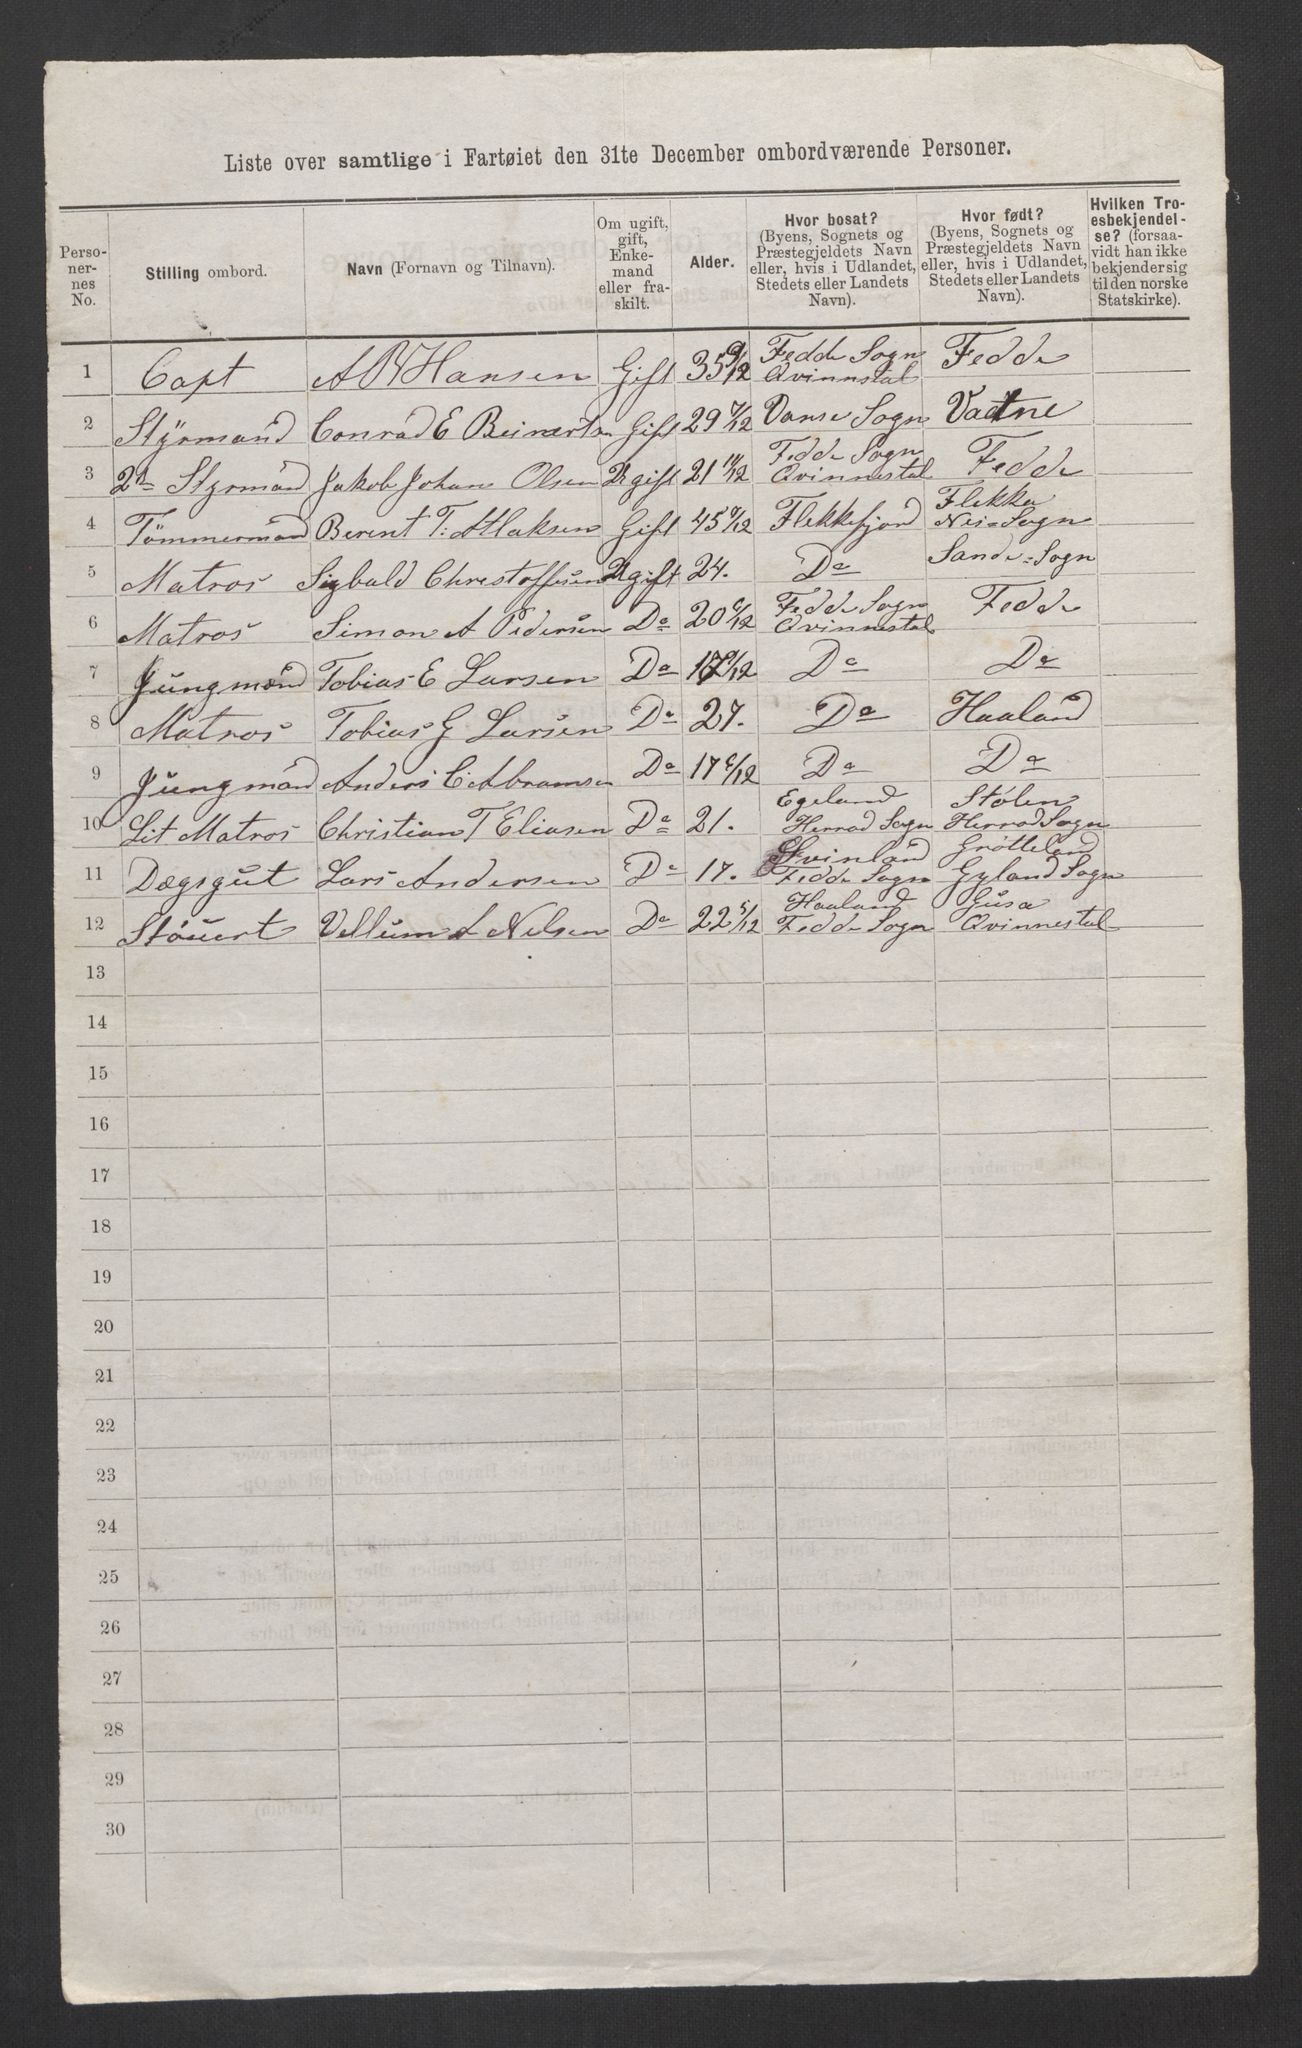 Liste over samtlige i Fartøiet den 31te December ombordværende Personer.
Personernes No. | Stilling ombord. | Navn (Fornavn og Tilnavn). | Om ugift, gift, Enkemand eller fraskilt. | Alder. | Hvor bosat? (Byens, Sognets og Præstegjeldets Navn eller, hvis i Udlandet, Stedets eller Landets Navn). | Hvor født? (Byens, Sognets og Præstegjeldets Navn eller, hvis i Udlandet, Stedets eller Landets Navn). | Hvilken Troesbekjendelse? (forsaavidt han ikke bekjender sig til den norske Statskirke).
1 | Capt | Hansen | Gift | 35 9/12 | Fedde Sogn Qvinnestal | Fedde
2 | Styrmand | Conrad E Beinertsn | Gift | 29 7/12 | Vanse Sogn | Vatne
3 | 2den Styrmand | Jakob Johan Olsen | Ugift | 21 11/12 | Fedde Sogn Qvinnestal | Fedde
4 | Tömmermand | Berent T: Aslaksen | Gift | 45 | Flekkefjord | Flekke Nes=Sogn
5 | Matros | Sigbald Christoffersen | Ugift | 24. | Do | Sande=Sogn
6 | Matros | Simon A Pedersen | Do | 20 | Fedde Sogn Qvinnestal | Fedde
7 | Jungmand | Tobias E Larsen | Do | 17 | Do | Do
8 | Matros | Tobias G Larsen | Do | 27. | Do | Haaland
9 | Jungmand | Anders C. Abramsen | Do | 17 | Do | Do
10 | Let Matros | Christian T Eliasen | Do | 21. | Egeland Herrad Sogn | Stølen Herrad Sogn
11 | Dægsgut | Lars Andersen | Do | 17. | Svinland Fedde Sogn | Grötteland Gyland Sogn
12 | Stöuert | Vellum A Nelsen | Do | 22 5/12 | Haaland Fedde Sogn | Gusa Qvinnestal
13
14
15
16
17
18
19
20
21
22
23
24
25
26
27
28
29
30